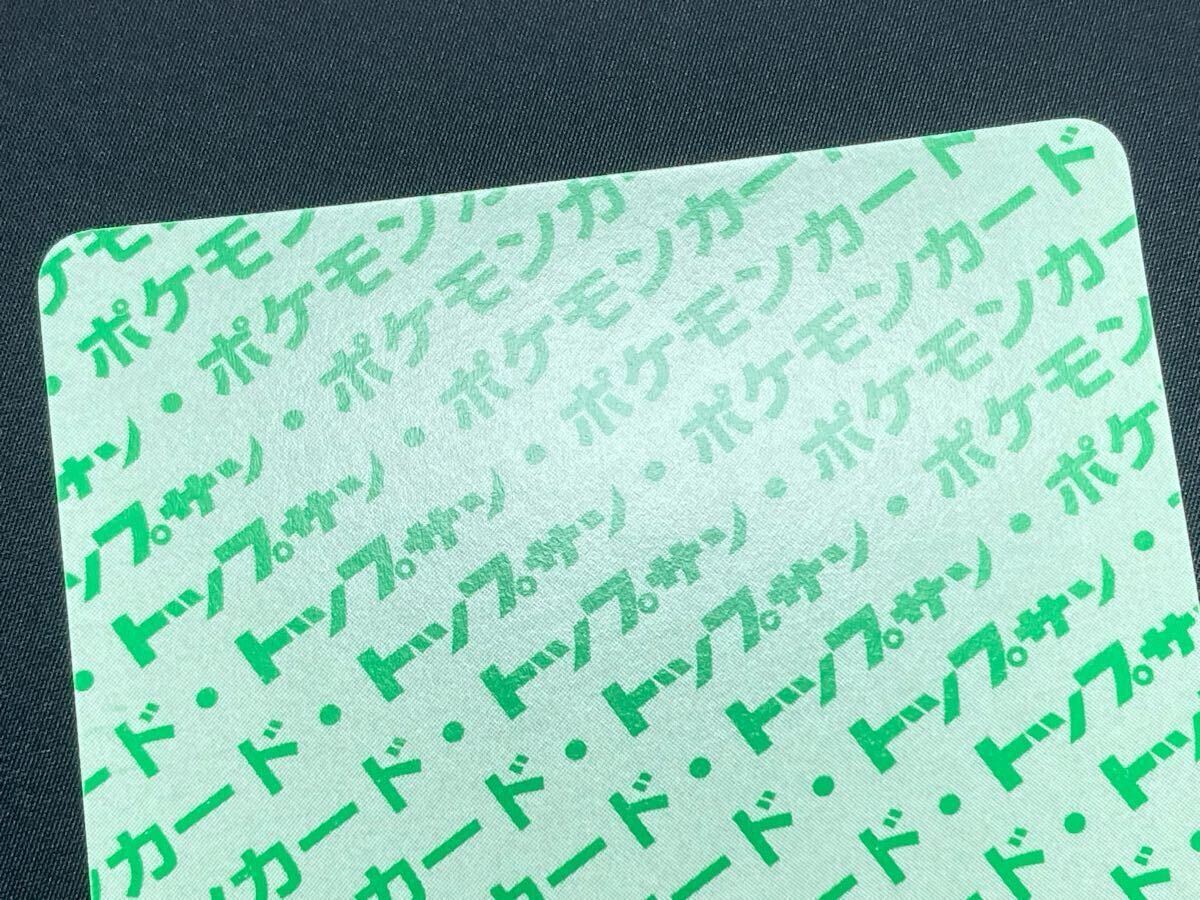 ケモ
・ポケモン
サン・ポケモンカ
ップサン・ポケモンカ
・トップサン・ポケモンカー
ード・トップサン・ポケモンカード
カード・トップサン・ポケモンカード
カード・トップサン・ポケモンカー
カード・トップサン・ポケモン
ード・トップサン・ポケ
ード・トップサン・
ード・トップサ
ド・トッ
ド・